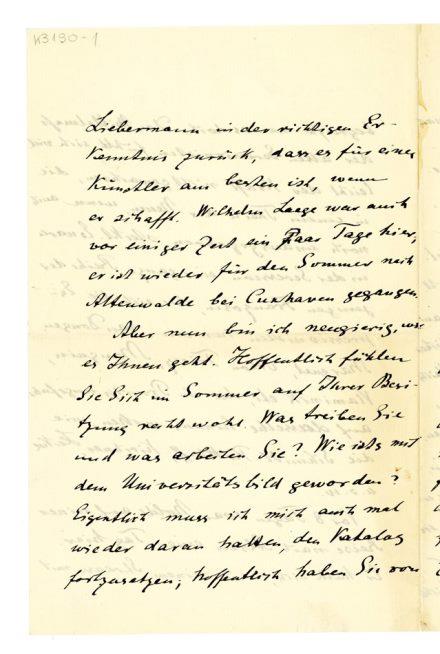 K3190-1
Liebermann in der richtigen Er-
kenntnis zurück, dass es für einen
Künstler am besten ist, wenn
er schafft. Wilhelm Laage war auch
vor einiger Zeit ein Paar Tage hier,
er ist wieder für den Sommer nach
Altenwalde bei Cuxhaven gegangen.
Aber nun bin ich neugierig, wie
es Ihnen geht. Hoffentlich fühlen
Sie Sich im Sommer auf Ihrer Besi-
tzung recht wohl. Was treiben Sie
und was arbeiten Sie? Wie ists mit
dem Universitätsbild geworden?
Eigentlich muss ich mich auch mal
wieder daran halten, den Katalog
fortzusetzen; hoffentlich haben Sie von